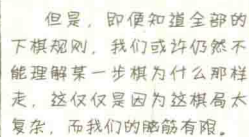 但是，即便知道全部的
下棋规则，我们或许仍然不
能理解某一步棋为什么那样
走，这仅仅是因为这棋局太
复杂，而我们的脑筋有限。